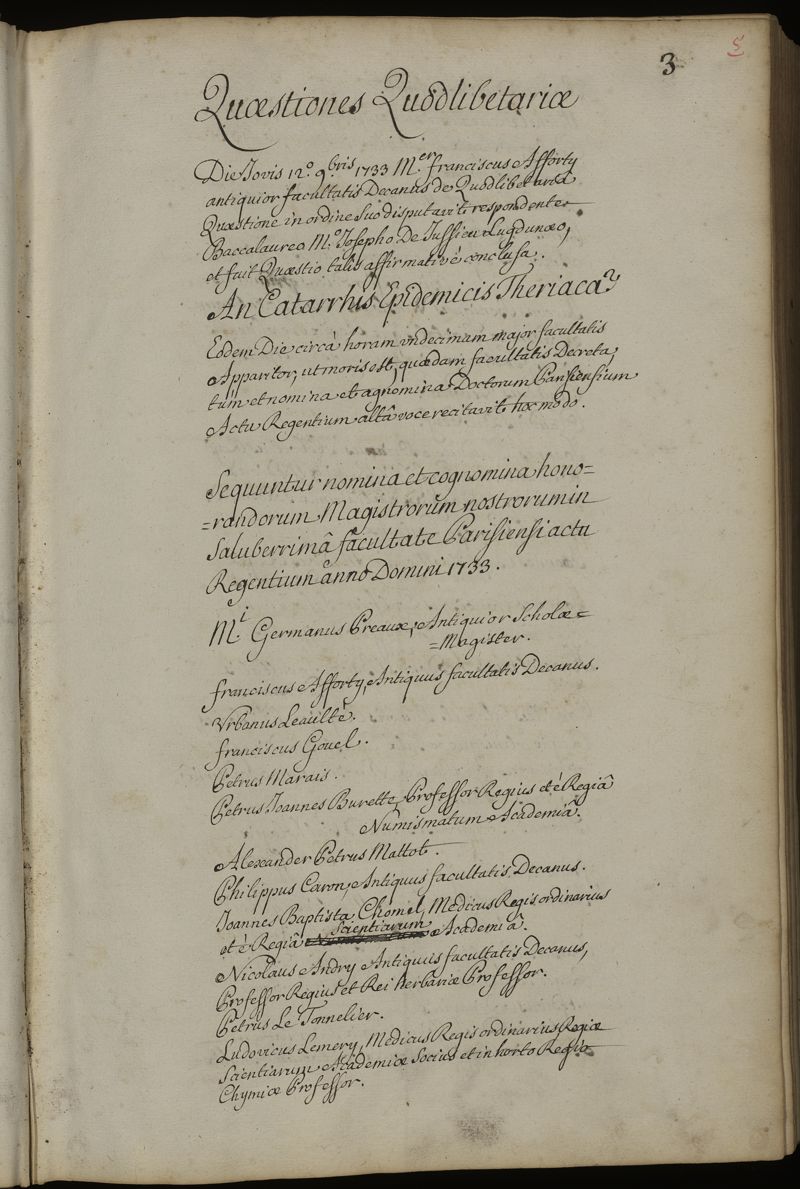 3
5
Quæstiones Quodlibetariæ
Die Jovis 12.º 9.bris 1733 M.er franciscus Afforty
antiquior facultatis Decanus de Quodlibetariâ
Quæstione in ordine Suo disputavit respondente
Baccalaureo M.º Josepho De Jussieu Lugdunæo,
et fuit Quæstio talis affirmativè conclusa.
An Catarrhis Epidemicis Theriaca?
Eodem Die circà horam undecimam major facultatis
Apparitor, ut moris est, quædam facultatis Decreta,
tùm et nomina et agnomina Doctorum Parisiensium
Actu Regentium altâ voce recitavit hoc modo.
Sequuntur nomina et cognomina hono=
=randorum Magistrorum nostrorum in
Saluberrimâ facultate Parisiensi actu
Regentium anno Domini 1733.
M.i Germanus Preaux, Antiquior Scholæ=
=Magister.
franciscus Afforty, Antiquus facultatis Decanus.
Urbanus Leaulté.
franciscus Gouel.
Petrus Marais.
Petrus Joannes Burette, Professor Regius et è Regiâ
Numismatum Academiâ.
Alexander Petrus Mattot.
Philippus Caron, Antiquus facultatis Decanus.
Joannes Baptista Chomel, Medicus Regis ordinarius
et è Regiâ Scientiarum Academiâ.
Nicolaus Andry Antiquus facultatis Decanus,
Professor Regius et Rei herbariæ Professor.
Petrus Le Tonnelier.
Ludovicus Lemery, Medicus Regis ordinarius Regiæ
Scientiarum Academiæ Socius et in horto Regio
Chymiæ Professor.